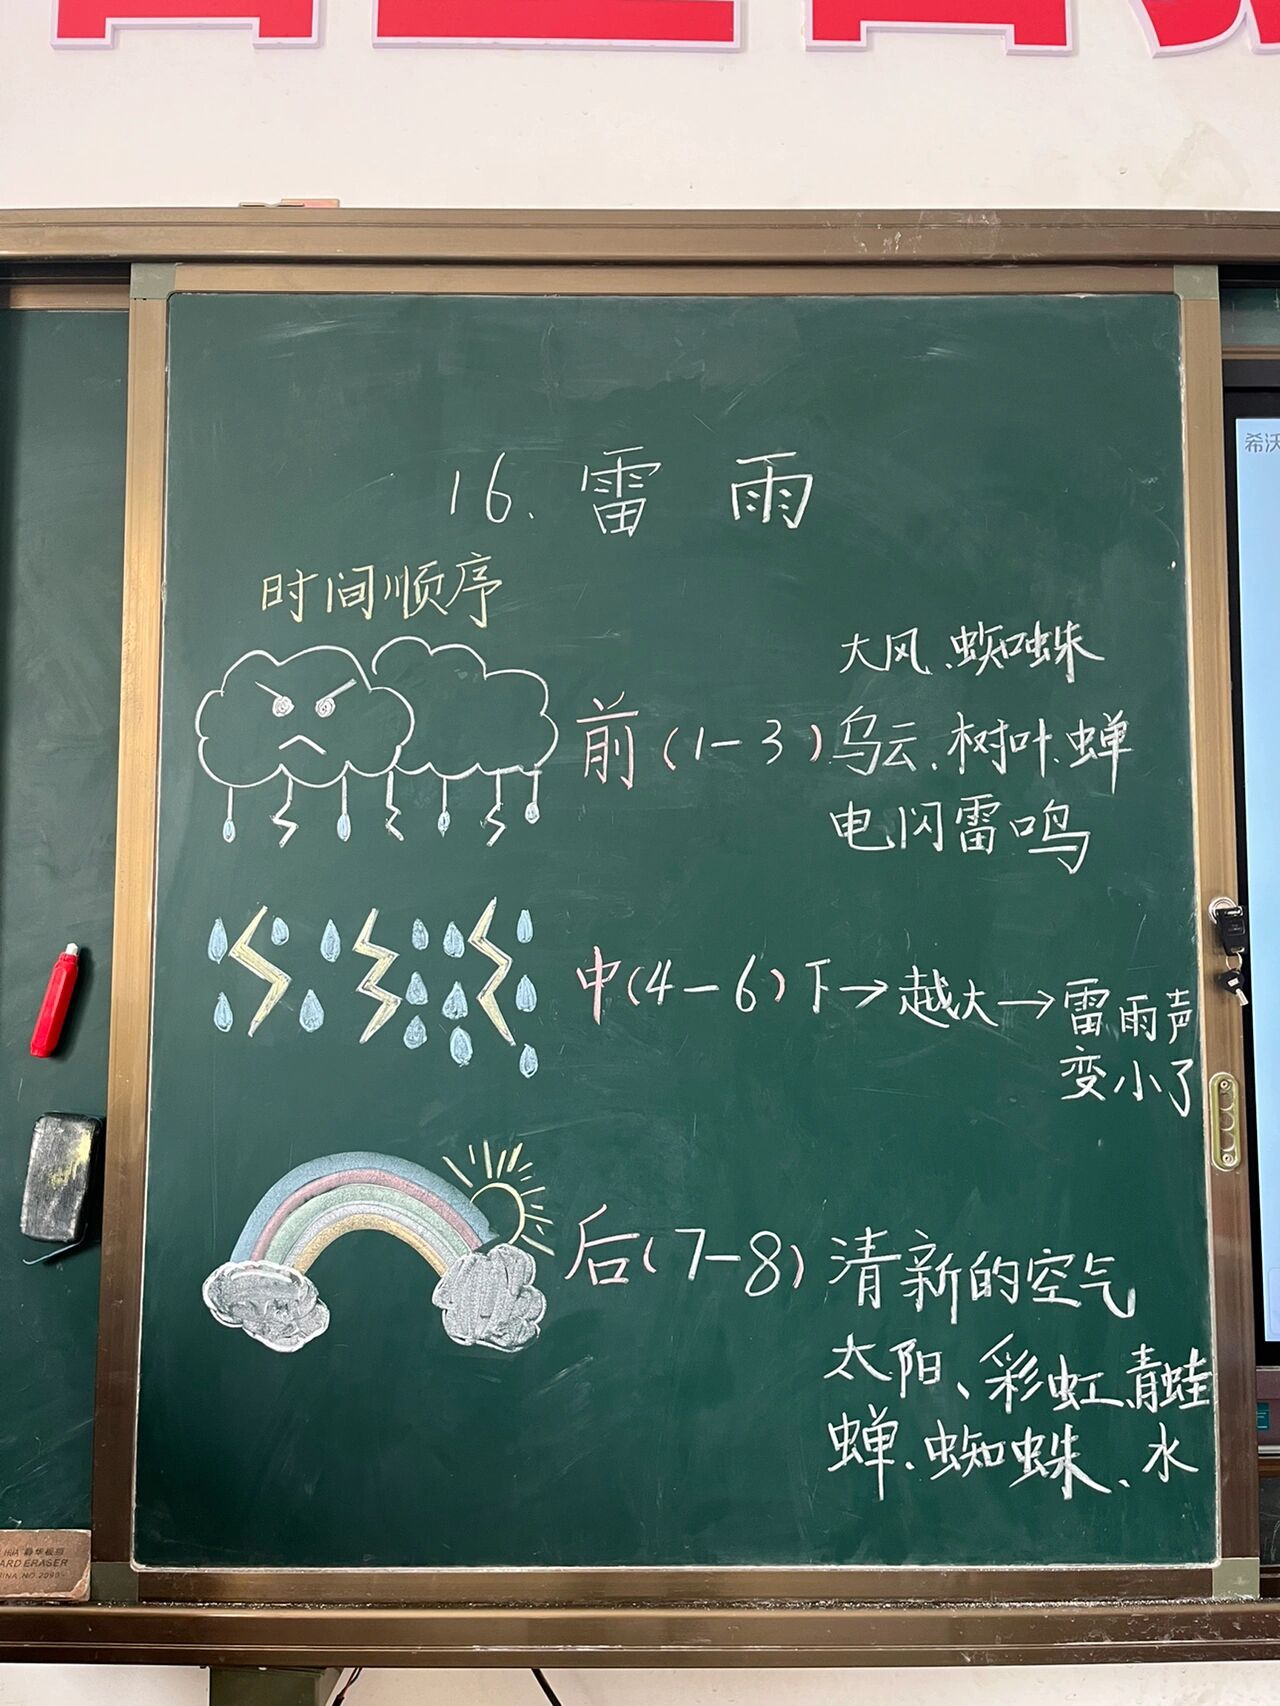 16. 雷雨
时间顺序
大风、蜘蛛
前(1-3)乌云、树叶、蝉
电闪雷鸣
中(4-6)下→越大→雷雨声
变小了
后(7-8)清新的空气
太阳、彩虹、青蛙
蝉、蜘蛛、水
希沃
ARD ERASER